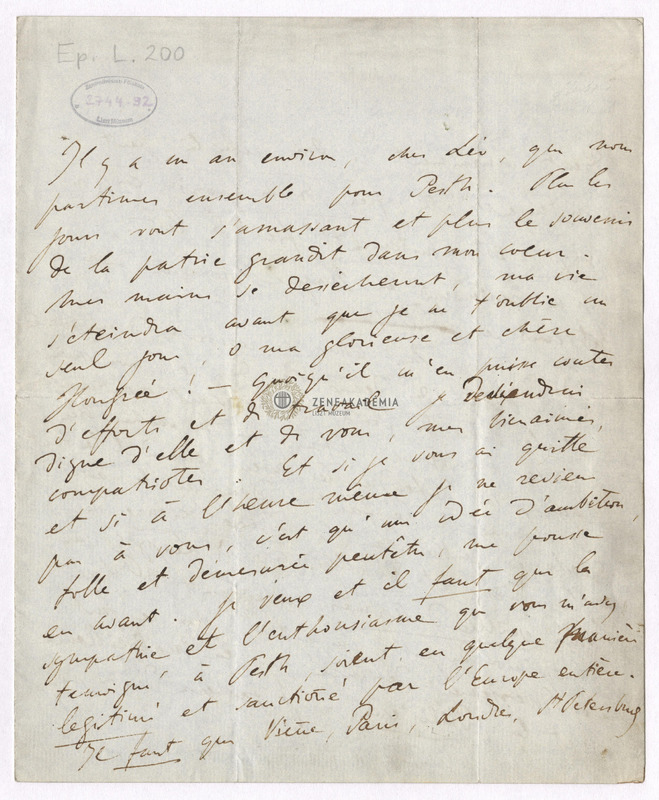 Ep. L. 200
2744.92
Il y a un an environ, cher Léo, que nous
partimes ensemble pour Pesth. Plus les
jours vont s'amassant et plus le souvenir
de la patrie grandit dans mon coeur.
Mes mains se dessécheront, ma vie
s'éteindra avant que je ne t'oublie un
seul jour, o ma glorieuse et chère
Hongrie! — Quoiqu'il m'en puisse couter
d'efforts et de travail je deviendrai
digne d'elle et de vous, mes bienaimés,
compatriotes. Et si je vous ai quitté
et si à l'heure même je ne reviens
pas à vous, c'est qu'une idée d'ambition,
folle et démesurée peutêtre, me pousse
en avant. Je veux et il faut que la
sympathie et l'enthousiasme que vous m'avez
temoigné à Pesth, soient en quelque manière
legitimé et sanctioné par l'Europe entière.
Il faut que Viene, Paris, Londres, St Petersburg
ZENEAKADÉMIA
LISZT MÚZEUM